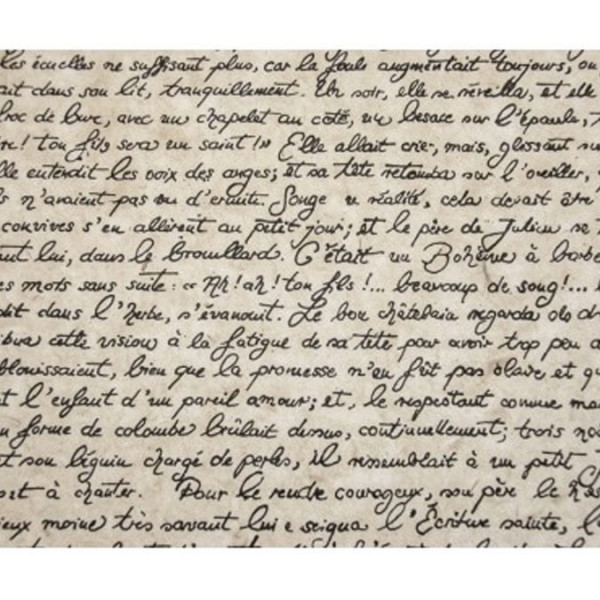 les écuelles ne suffisant plus, car la foule augmentait toujours, on
ait dans son lit, tranquillement. Un soir, elle se réveilla, et elle
froc de bure, avec un chapelet au côté, une besace sur l'épaule,
re! ton fils sera un saint!» Elle allait crier, mais, glissant su
lle entendit les voix des anges; et sa tête retomba sur l'oreiller,
s n'avaient pas vu d'ermite. Songe u réalité, cela devait être
convives s'en allèrent au petit jour; et le père de Julien se
ant lui, dans le brouillard. C'était un Bohême à barbe
es mots sans suite: «Ah! ah! ton fils!... beaucoup de sang!...
dit dans l'herbe, s'évanouit. Le bon châtelain regarda de dr
ibua cette vision à la fatigue de sa tête pour avoir trop peu
blouissaient, bien que la promesse n'en fût pas claire et qu
t l'enfant d'un pareil amour; et, le respectant comme ma
n forme de colombe brûlait dessus, continuellement; trois no
t son béguin chargé de perles, il ressemblait à un petit J
à chanter. Pour le rendre courageux, son père le
ieux moine très savant lui e seigna l'Écriture sainte, l